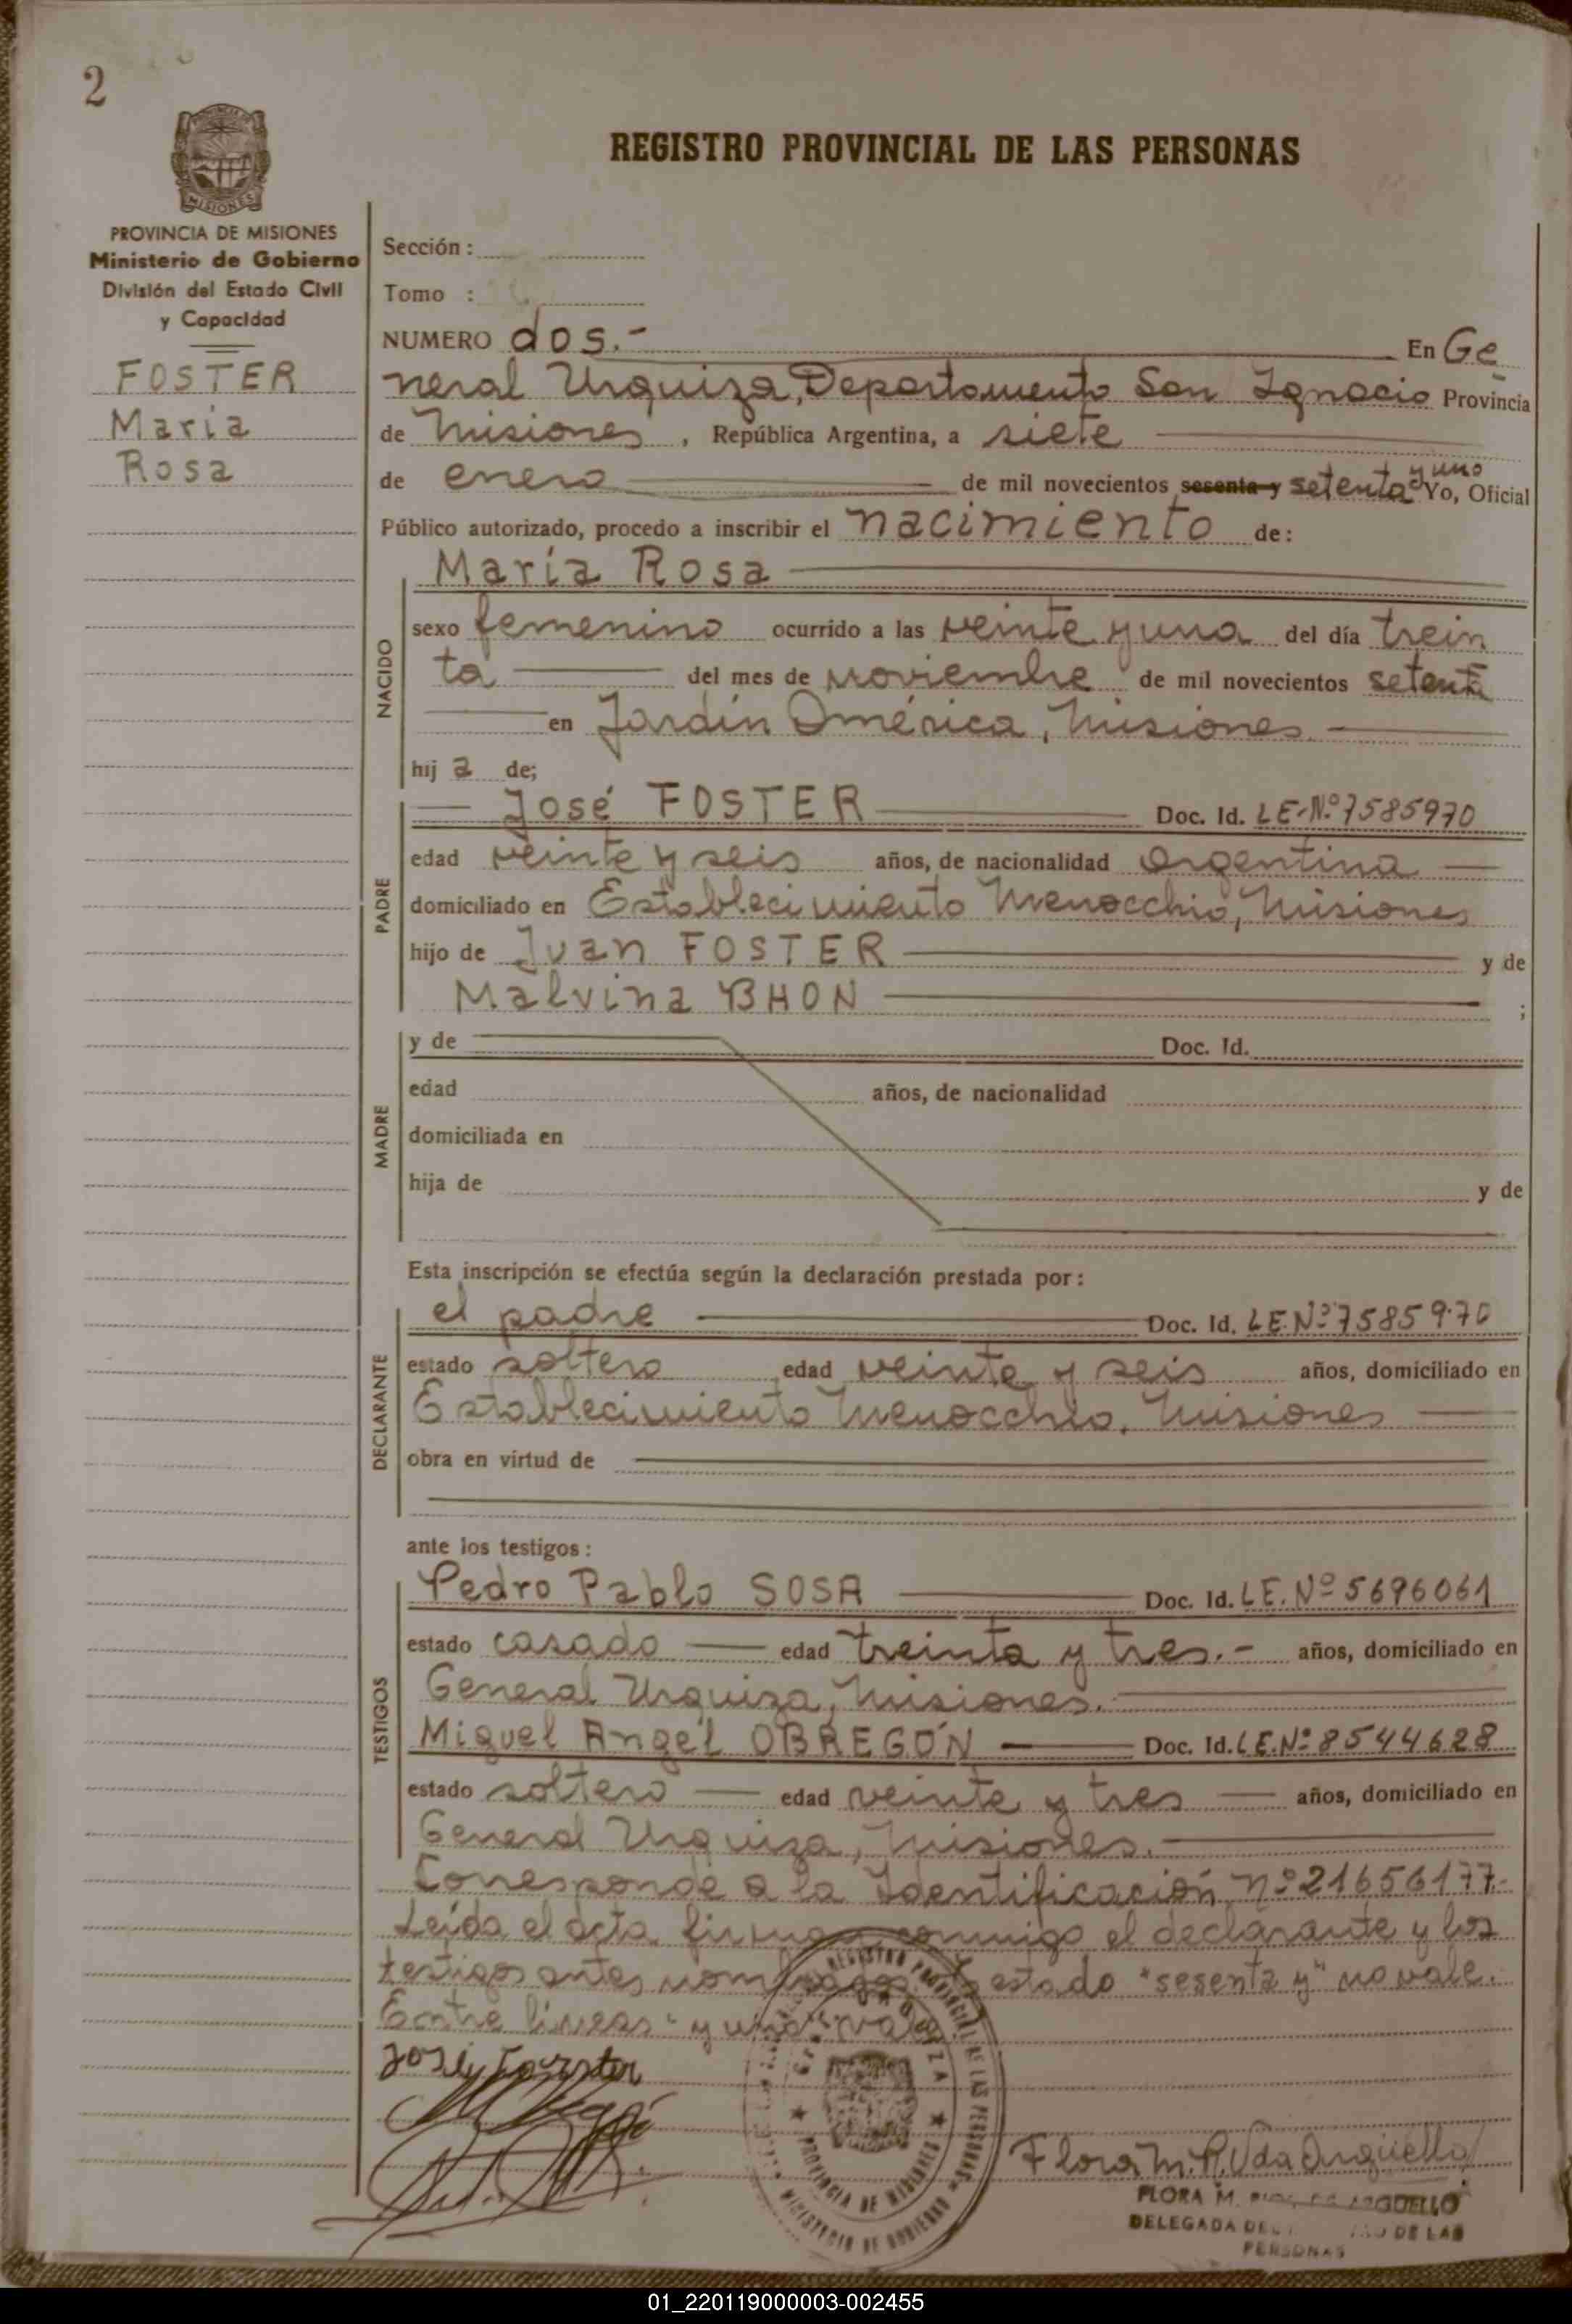 2
MISIONES
PROVINCIA DE MISIONES
Ministerio de Gobierno
División del Estado Civil
y Capacidad
FOSTER
María
Rosa
REGISTRO PROVINCIAL DE LAS PERSONAS
Sección :
Tomo :
NUMERO dos.- En Ge
neral Urquiza, Departamento San Ignacio Provincia
de Misiones, República Argentina, a siete
de enero de mil novecientos sesenta y setenta y uno Yo, Oficial
Público autorizado, procedo a inscribir el nacimiento de:
NACIDO
María Rosa
sexo femenino ocurrido a las veinte y una del día trein
ta del mes de noviembre de mil novecientos setenta
en Jardín América, Misiones
hij a de;
PADRE
José FOSTER Doc. Id. LE-Nº 7585970
edad veinte y seis años, de nacionalidad argentina
domiciliado en Establecimiento Menocchio, Misiones
hijo de Juan FOSTER y de
Malvina BHON ;
MADRE
y de Doc. Id.
edad años, de nacionalidad
domiciliada en
hija de y de
Esta inscripción se efectúa según la declaración prestada por:
DECLARANTE
el padre Doc. Id. LE.Nº 7585970
estado soltero edad veinte y seis años, domiciliado en
Establecimiento Menocchio, Misiones
obra en virtud de
ante los testigos:
TESTIGOS
Pedro Pablo SOSA Doc. Id. LE.Nº 5696061
estado casado edad treinta y tres.- años, domiciliado en
General Urquiza, Misiones.
Miguel Angel OBREGÓN Doc. Id. LE.Nº 8544628
estado soltero edad veinte y tres años, domiciliado en
General Urquiza, Misiones.
Corresponde a la Identificación Nº 21656177.-
Leída el acta firman conmigo el declarante y los
testigos antes nombrados. estado "sesenta y" no vale.
Entre líneas "y uno" vale
José Forster
Flora M. R. Vda Argüello
FLORA M. ARGUELLO
DELEGADA DE LAS
PERSONAS
REGISTRO PROVINCIAL DE LAS PERSONAS
PROVINCIA DE MISIONES
MINISTERIO DE GOBIERNO
01_220119000003-002455